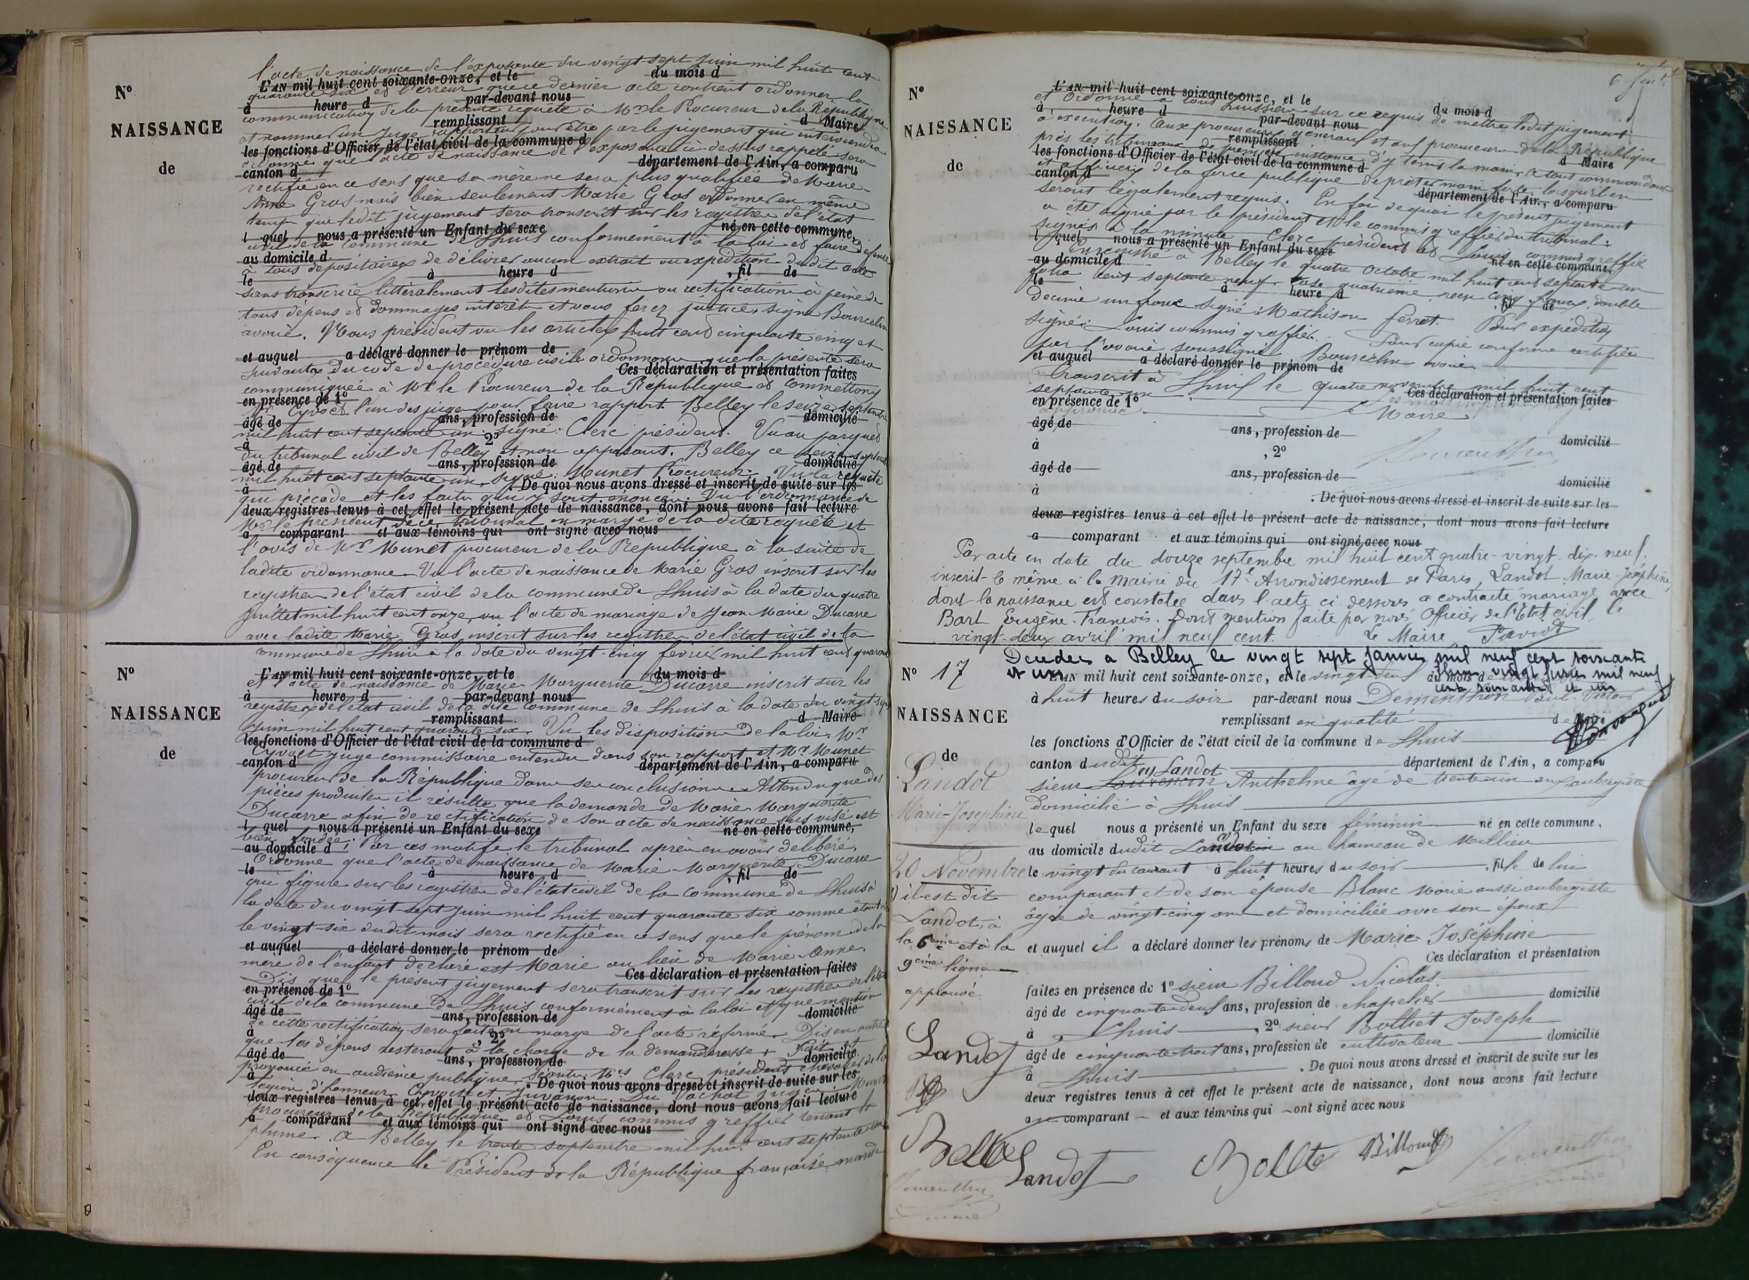 N°
NAISSANCE
de
l'acte de naissance de l'exposante du vingt sept juin mil huit cent
L'AN mil huit cent soixante-onze, et le du mois d
quarante six et l'erreur que ce dernier acte contient ordonner la
à heure d par-devant nous
communication de la présente requête à Mr le Procureur de la République
remplissant d Maire
et nommer un juge rapporteur pour être par le jugement qui interviendra
les fonctions d'Officier de l'état civil de la commune d
ordonné que l'acte de naissance de l'exposante ci-dessus rappelé sera
canton d département de l'Ain, a comparu
rectifié en ce sens que sa mère ne sera plus qualifiée de Marie
Anne Gros mais bien seulement Marie Gros ordonner en même
temps que ledit jugement sera transcrit sur les registres de l'état
l quel nous a présenté un Enfant du sexe né en cette commune,
civil de la commune de Lhuis conformément à la loi et faire défense
au domicile d
à tous dépositaires de délivrer aucun extrait ou expédition dudit acte
le à heure d , fil de
sans transcrire littéralement lesdites mentions ou rectifications à peine de
tous dépens et dommages intérêts et vous ferez justice, signé Bourcelin
avoué. Nous président vu les articles huit cent cinquante cinq et
et auquel a déclaré donner le prénom de
suivants du code de procédure civile ordonnons que la présente sera
Ces déclaration et présentation faites
communiquée à Mr le Procureur de la République et commettons
en présence de 1°
l'un des juges pour faire rapport. Belley le seize septembre
âgé de ans, profession de domicilié
mil huit cent septante un. signé: Clerc président. Vu au parquet
à 2°
du tribunal civil de Belley et non opposant. Belley ce seize septembre
âgé de ans, profession de domicilié
mil huit cent septante un. Signé: Munet Procureur. Vu la requête
à . De quoi nous avons dressé et inscrit de suite sur les
qui précède et les faits qui y sont énoncés. Vu l'ordonnance de
deux registres tenus à cet effet le présent acte de naissance, dont nous avons fait lecture
Mr le président de ce tribunal en marge de la dite requête et
a comparant et aux témoins qui ont signé avec nous
l'avis de Mr Munet procureur de la République à la suite de
ladite ordonnance. Vu l'acte de naissance de Marie Gros inscrit sur les
registres de l'état civil de la commune de Lhuis à la date du quatre
juillet mil huit cent onze, vu l'acte de mariage de Jean Marie Ducarre
avec ladite Marie Gros inscrit sur les registres de l'état civil de la
N°
NAISSANCE
de
commune de Lhuis à la date du vingt cinq février mil huit cent quarante
L'AN mil huit cent soixante-onze, et le du mois d
et l'acte de naissance de Marie Marguerite Ducarre inscrit sur les
à heure d par-devant nous
registres de l'état civil de la dite commune de Lhuis à la date du vingt sept
remplissant d Maire
juin mil huit cent quarante six. Vu les dispositions de la loi. Mr
les fonctions d'Officier de l'état civil de la commune d
juge commissaire entendu dans son rapport et Mr Munet
canton d département de l'Ain, a comparu
procureur de la République dans ses conclusions. Attendu que des
pièces produites il résulte que la demande de Marie Marguerite
Ducarre afin de rectification de son acte de naissance sus visé est
l quel nous a présenté un Enfant du sexe né en cette commune,
bien fondée. Par ces motifs le tribunal après en avoir délibéré,
au domicile d
Ordonne que l'acte de naissance de Marie Marguerite Ducarre
le à heure d , fil de
qui figure sur les registres de l'état civil de la commune de Lhuis à
la date du vingt sept juin mil huit cent quarante six comme étant née
le vingt six dudit mois sera rectifié en ce sens que le prénom de la
et auquel a déclaré donner le prénom de
mère de l'enfant déclaré est Marie au lieu de Marie Anne.
Ces déclaration et présentation faites
Dit que le présent jugement sera transcrit sur les registres de l'état
en présence de 1°
civil de la commune de Lhuis conformément à la loi et que mention
âgé de ans, profession de domicilié
de cette rectification sera faite en marge de l'acte réformé. Dit en outre
à , 2°
que les dépens resteront à la charge de la demanderesse. Fait et
âgé de ans, profession de domicilié
prononcé en audience publique, séants Mrs Clerc président chevalier de la
à . De quoi nous avons dressé et inscrit de suite sur les
légion d'honneur,
deux registres tenus à cet effet le présent acte de naissance, dont nous avons fait lecture
procureur de la République et Louis commis greffier tenant la
a comparant et aux témoins qui ont signé avec nous
plume. A Belley le trente septembre mil huit cent septante un
En conséquence le Président de la République française mande
N°
NAISSANCE
de
L'AN mil huit cent soixante-onze, et le du mois d
et ordonne à tous huissiers sur ce requis de mettre ledit jugement
à heure d par-devant nous
à exécution, aux procureurs généraux et aux procureurs de la République
remplissant d Maire
près les tribunaux de première instance d'y tenir la main, à tous commandants
les fonctions d'Officier de l'état civil de la commune d
et officiers de la force publique de prêter main forte lorsqu'ils en
canton d département de l'Ain, a comparu
seront légalement requis. En foi de quoi le présent jugement
a été signé par le président et le commis greffier du tribunal.
signés à la minute: Clerc président et Louis commis greffier
l quel nous a présenté un Enfant du sexe né en cette commune,
enregistré à Belley le quatre octobre mil huit cent septante un
au domicile d
folio cent septante neuf, case quatrième reçu cinq francs, double
le à heure d , fil de
décime un franc signé: Mathison ferret. Pour expédition
signé: Louis commis greffier. Pour copie conforme certifiée
par l'avoué soussigné Bourcelin avoué
et auquel a déclaré donner le prénom de
Transcrit à Lhuis le quatre novembre mil huit cent
Ces déclaration et présentation faites
septante un
en présence de 1°
Maire
âgé de ans, profession de domicilié
à , 2°
âgé de ans, profession de domicilié
à . De quoi nous avons dressé et inscrit de suite sur les
deux registres tenus à cet effet le présent acte de naissance, dont nous avons fait lecture
a comparant et aux témoins qui ont signé avec nous
Par acte en date du douze septembre mil huit cent quatre-vingt-dix-neuf,
inscrit le même à la Mairie du 17e Arrondissement de Paris, Landot Marie Joséphine,
dont la naissance est constatée dans l'acte ci dessous a contracté mariage avec
Bart Eugène-François. Dont mention faite par nous Officier de l'Etat civil, le
vingt-deux avril mil neuf cent. Le Maire
Décédée à Belley le vingt sept janvier mil neuf cent soixante
et un
vingt janvier mil neuf
cent soixante et un
N° 17
NAISSANCE
de
Landot
Marie-Joséphine
20 Novembre
il est dit
Landot, à
la 6eme et à la
9eme ligne
approuvé
Landot
L'AN mil huit cent soixante-onze, et le vingt du du mois de
à huit heures du soir par-devant nous
remplissant en qualité d
les fonctions d'Officier de l'état civil de la commune de Lhuis
canton dudit département de l'Ain, a comparu
sieur Landot Anthelme âgé de trente un ans aubergiste
domicilié à Lhuis
lequel nous a présenté un Enfant du sexe féminin né en cette commune,
au domicile dudit Landot au hameau de Millieu
le vingt du courant à huit heures du soir , fille de lui
comparant et de son épouse Blanc Marie aussi aubergiste
âgée de vingt cinq ans et domiciliée avec son époux
et auquel il a déclaré donner les prénoms de Marie Joséphine
Ces déclaration et présentation
faites en présence de 1° sieur Billoud Nicolas
âgé de cinquante deux ans, profession de chapelier domicilié
à Lhuis , 2° sieur Bolliet Joseph
âgé de cinquante huit ans, profession de cultivateur domicilié
à Lhuis . De quoi nous avons dressé et inscrit de suite sur les
deux registres tenus à cet effet le présent acte de naissance, dont nous avons fait lecture
au comparant et aux témoins qui ont signé avec nous
Landot Billoud